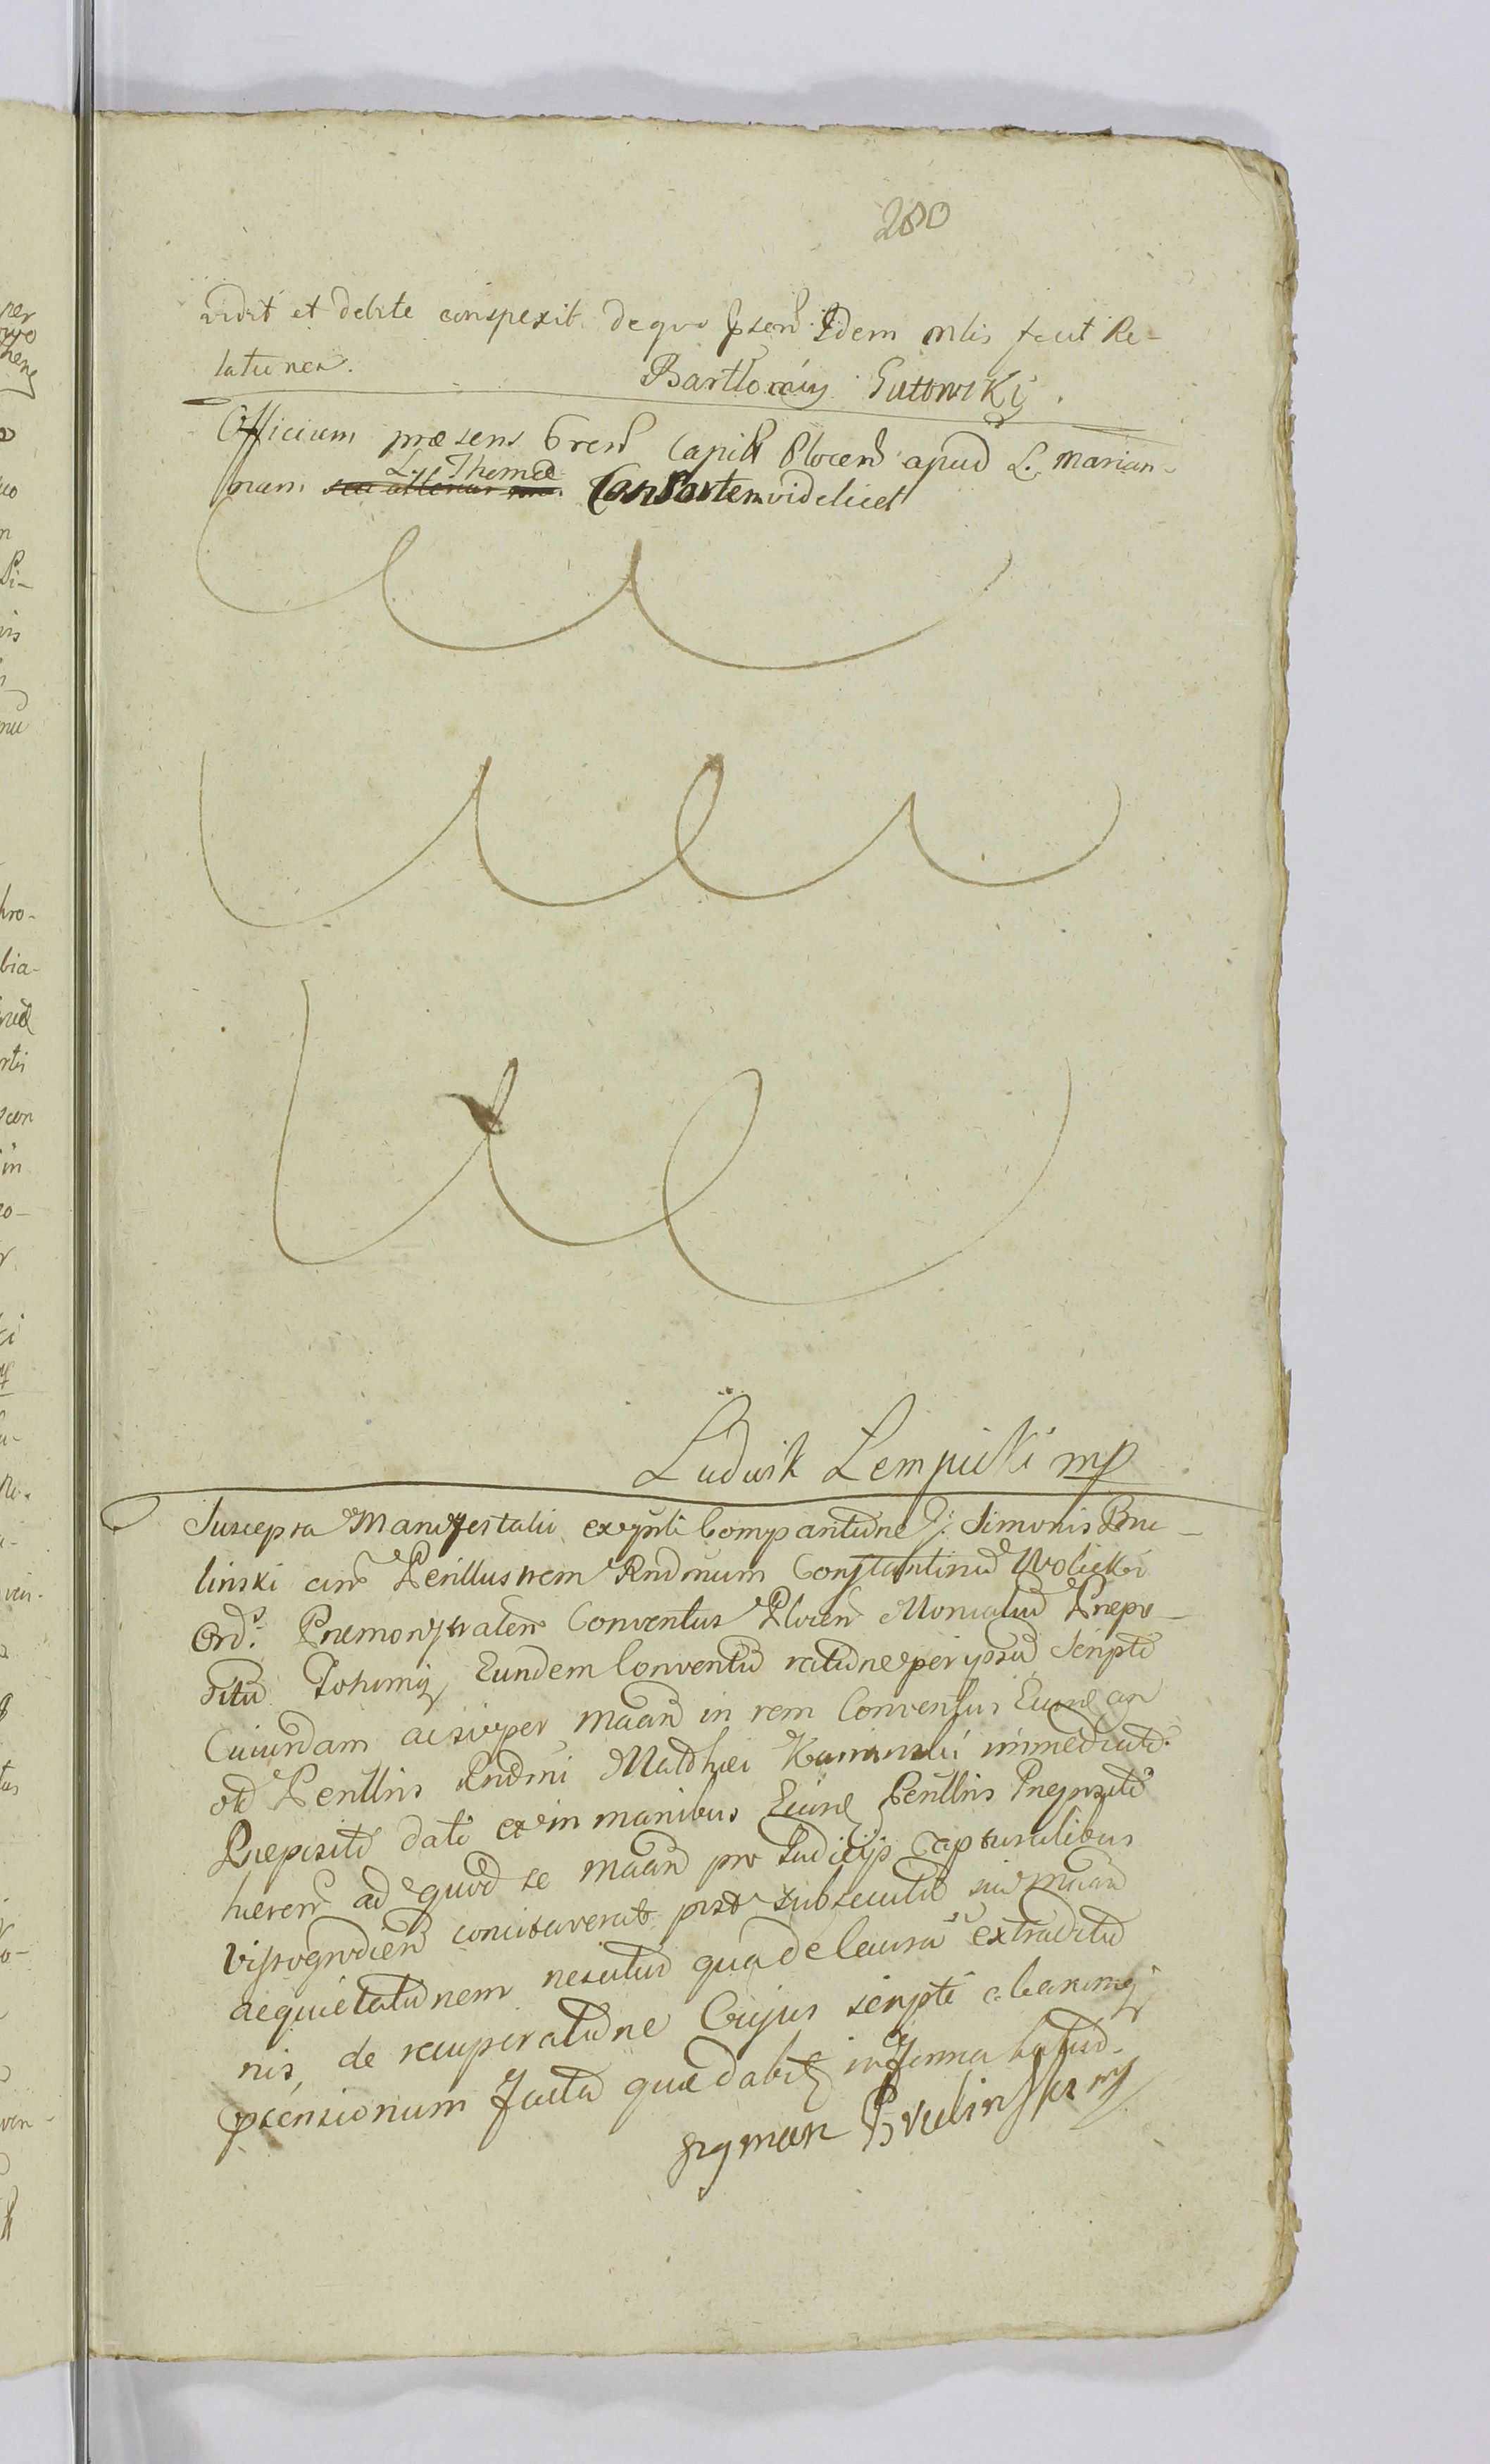 280
vidit et debite conspexit de quo psen Idem Mlis fecit Re-
lationen.
Bartlomiy Gutowski.
Officium præsens Gren Capitl Plocen apud L. Marian-
nam L. Thomæ Consortem videlicet
Ludwik Lempicki mp
Suscepta Manifestatii ex ipsti Compantione G. Simonis Bru-
linski cire Perillustrem Rndmum Constantinū Wolicki
Ord. Premonstraten Conventus Plocen Monialiū Prepo-
sitū Totumq Eundem Conventū ratione per ipsū scripti
Cuiusdam ac super Maan in rem Conventus Eiusd
olī Perillris Rndmi Matthæi Kaminski immediate
Præpositi dati et in manibus Eiusd Perillris Prepositi
heren ad quod se Maan pro Judicijs Capturalibus
Vissogrodien concitaverat post subsecutā sui Maan
acquietationem nesutud qua de causa extraditū
nis, de recuperatione Cujus scripti aliarumq
psensionum facta quæ dabit in forma
Szyman Brulinski mp